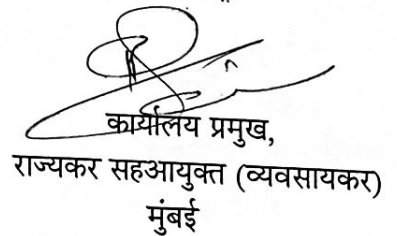 कार्यालय प्रमुख,
राज्यकर सहआयुक्त (व्यवसायकर)
मुंबई